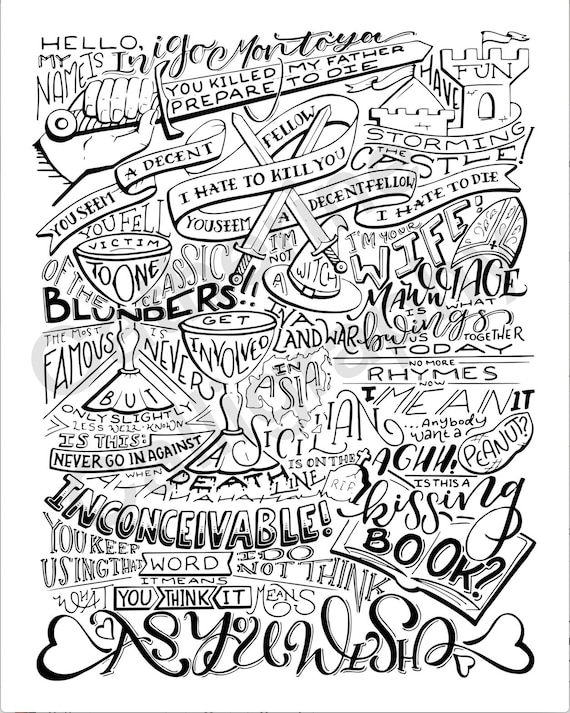 HELLO,
MY NAME IS Inigo Montoya
YOU KILLED MY FATHER
PREPARE TO DIE
HAVE FUN
STORMING
THE
CASTLE!
YOU SEEM A DECENT FELLOW
I HATE TO KILL YOU
YOU SEEM A DECENT FELLOW
I HATE TO DIE
YOU FELL
VICTIM
TO ONE
OF THE CLASSIC
BLUNDERS!!
THE MOST
FAMOUS IS NEVER
GET
INVOLVED
IN A LAND WAR
IN
ASIA
BUT
ONLY SLIGHTLY
LESS WELL KNOWN
IS THIS:
NEVER GO IN AGAINST
A SICILIAN
WHEN
DEATH
IS ON THE
LINE
HAHAHAHA
R.I.P.
I'M
NOT
A
WITCH
I'M YOUR
WIFE!
MAWWIAGE
IS WHAT
bwings
US TOGETHER
TODAY
NO MORE
RHYMES
NOW
I MEAN IT
...Anybody
want a
PEANUT?
AGHH!
IS THIS A
kissing
BOOK?
INCONCEIVABLE!
YOU KEEP
USING THAT WORD
I DO
NOT THINK
IT MEANS
WHAT YOU THINK IT MEANS
AS YOU WISH